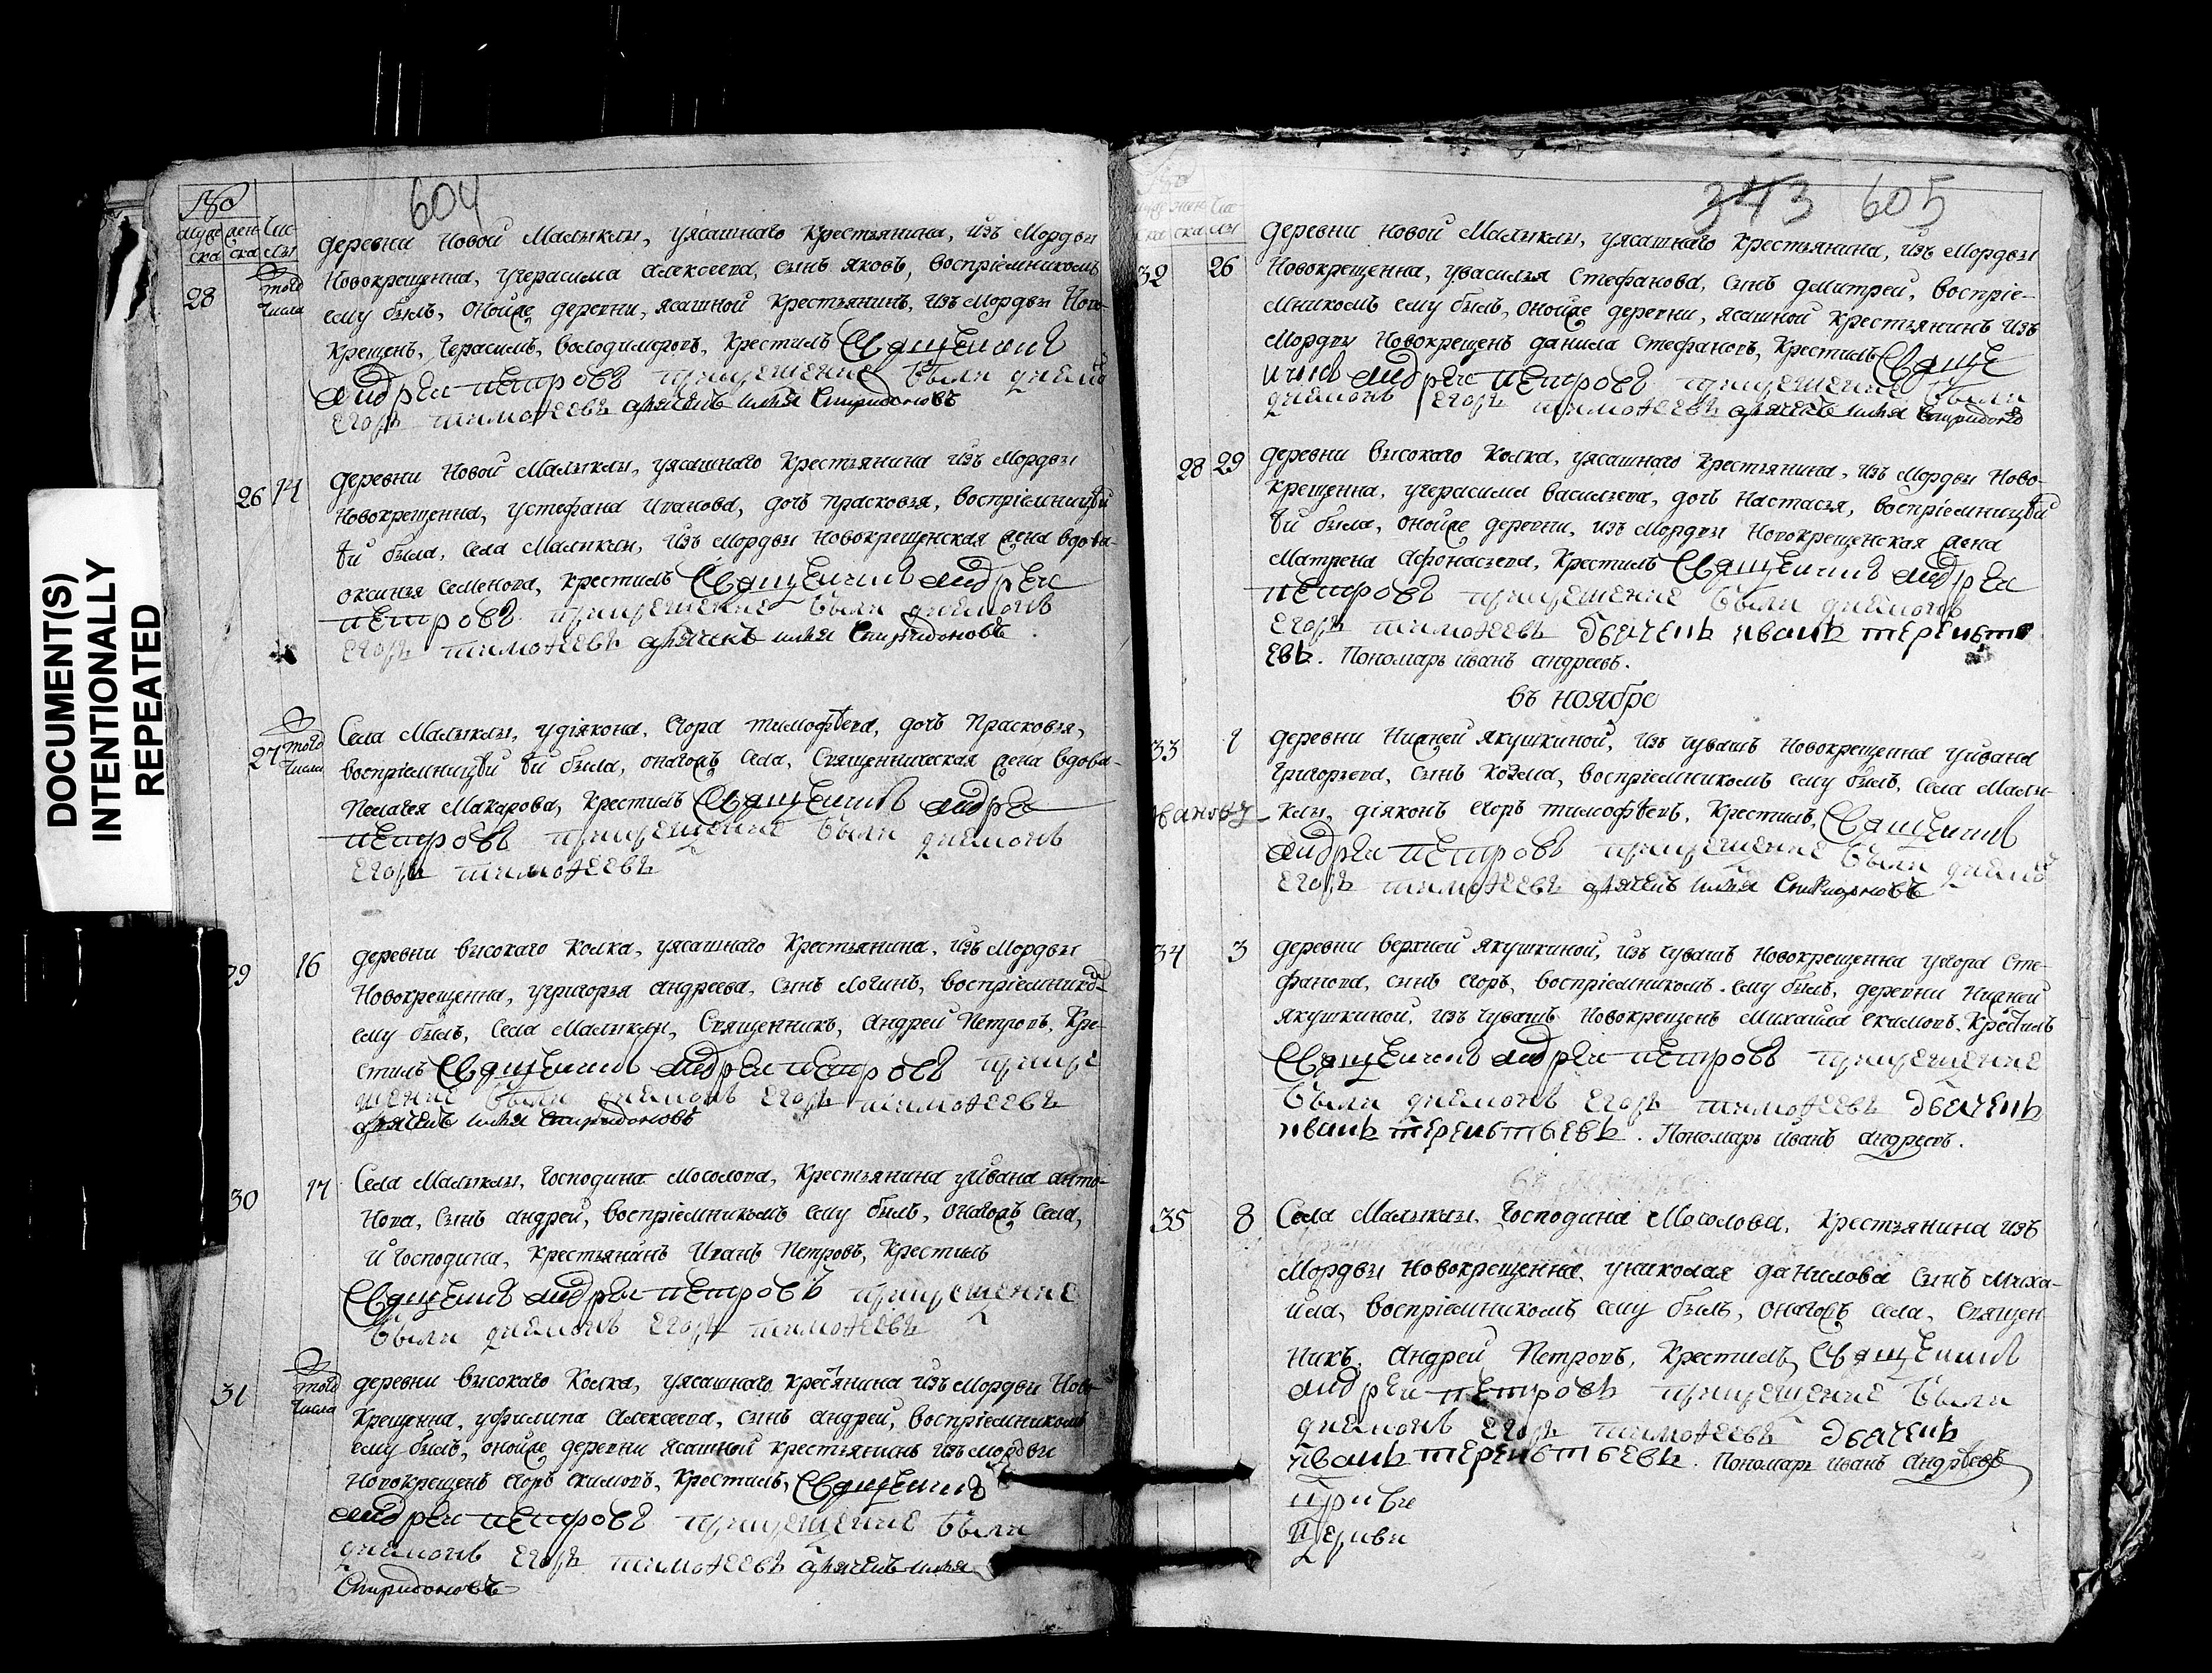 DOCUMENT(S)
INTENTIONALLY
REPEATED
604
муже ска жен ска Чис лы
28 Того Числа
деревни Новой Малыклы, уясашнаго крестьянина, изъ Мордвы
Новокрещенна, угерасима алексеева, сынъ яковъ, воспріемникомъ
ему былъ, оной же деревни, ясашной крестьянинъ, изъ Мордвы Ново-
крещенъ, герасимъ, володимеровъ, крестилъ Священникъ
андрей петровъ прикрещение были дияконъ
егоръ тимофеевъ дьячекъ илья Спиридоновъ
26 14
деревни Новой Малыклы, уясашнаго крестьянина изъ Мордвы
Новокрещенна, устефана Иванова, дочь прасковья, воспріемницѣй
ѣй была, села Малыклы, изъ Мордвы новокрещенская жена вдова
оксинья семенова, крестилъ Священникъ андреи
петровъ прикрещение были дияконъ
егоръ тимофеевъ дьячекъ илья Спиридоновъ
27 Того Числа
Села Малыклы, удіякона, Егора тимофѣева, дочь Прасковья,
воспріемницѣй ѣй была, оногожъ села, Священническая жена вдова
Пелагея Макарова, крестилъ Священникъ андреи
петровъ прикрещение были дияконъ
егоръ тимофеевъ
29 16
деревни высокаго Колка, уясашнаго крестьянина, изъ Мордвы
Новокрещенна, угригорья андреева, сынъ логинъ, воспріемникомъ
ему былъ, села Малыклы, Священникъ, Андрей Петровъ, кре-
стилъ Священникъ андреи петровъ прикре
щение были дияконъ егоръ тимофеевъ
дьячекъ илья Спиридоновъ
30 17
Села Малыклы, господина Мосолова, крестьянина уИвана анто-
нова, сынъ андрей, воспріемникомъ ему былъ, оногожъ села,
и господина, крестьянинъ Иванъ Петровъ, крестилъ
Священникъ андреи петровъ прикрещение
были дияконъ егоръ тимофеевъ
31 Того Числа
деревни высокаго Колка, уясашнаго крестьянина изъ Мордвы Ново-
крещенна, уфилипа Алексеева, сынъ андрей, воспріемникомъ
ему былъ, оной же деревни ясашной крестьянинъ изъ мордвы
новокрещенъ егоръ екимовъ, крестилъ, Священникъ
андреи петровъ прикрещение были
дияконъ егоръ тимофеевъ дьячекъ илья
Спиридоновъ
343 605
Чис лы
32 26
деревни новой Малыклы, уясашнаго крестьянина, изъ Мордвы
Новокрещенна, увасилья Стефанова, сынъ дмитрей, воспріе-
мникомъ ему былъ, оной же деревни, ясашной крестьянинъ изъ
Мордвы Новокрещенъ данила Стефановъ, крестилъ Свяще
никъ андреи петровъ прикрещение были
дияконъ егоръ тимофеевъ дьячекъ илья Спиридоновъ
28 29
деревни высокаго Колка, уясашнаго крестьянина, изъ Мордвы Ново-
крещенна, угерасима васильева, дочь Настасья, воспріемницѣй
ѣй была, оной же деревни, изъ Мордвы Новокрещенская жена
Матрена Афонасьева, крестилъ Священникъ андреи
петровъ прикрещение были дияконъ
егоръ тимофеевъ дьячекъ иванъ терентьевъ. Пономарь иванъ андреевъ.
въ ноябре
33 1
деревни Нижней якушкиной, изъ чувашъ Новокрещенна уивана
григорьева, сынъ козма, воспріемникомъ ему былъ, села Малы-
клы, діяконъ егоръ тимофѣевъ, крестилъ, Священникъ
андреи петровъ прикрещение были дияконъ
егоръ тимофеевъ дьячекъ илья Спиридоновъ
34 3
деревни верхней якушкиной, изъ чувашъ Новокрещенна уегора Сте-
фанова, сынъ егоръ, воспріемникомъ ему былъ, деревни Нижней
якушкиной, изъ чувашъ Новокрещенъ Михайла екимовъ, крестилъ
Священникъ андреи петровъ прикрещение
были дияконъ егоръ тимофеевъ дьячекъ
иванъ терентьевъ. Пономарь иванъ андреевъ.
35 8
Села Малыклы, господина Мосолова, крестьянина изъ
Мордвы новокрещенна, униколая данилова сынъ миха-
йла, воспріемникомъ ему былъ, оногожъ села, священ
никъ, Андрей Петровъ, крестилъ, Священникъ
андреи петровъ прикрещение были
дияконъ егоръ тимофеевъ дьячекъ
иванъ терентьевъ. Пономарь иванъ андрѣевъ